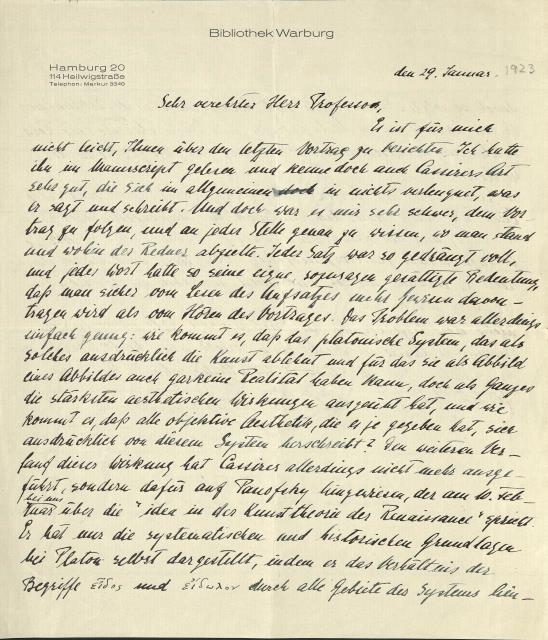 Bibliothek Warburg
Hamburg 20
114 Heilwigstraße
Telephon: Merkur 3340
den 29. Januar. 1923
Sehr verehrter Herr Professor,
Es ist für mich
nicht leicht, Ihnen über den letzten Vortrag zu berichten. Ich hatte
ihn im Manuscript gelesen und kenne doch auch Cassirers Art
sehr gut, die sich im allgemeinen doch in nichts verleugnet, was
er sagt und schreibt. Und doch war es mir sehr schwer, dem Vor-
trag zu folgen, und an jeder Stelle genau zu wissen, wo man stand
und wohin der Redner abzielte. Jeder Satz war so gedrängt voll,
und jedes Wort hatte so seine eigne, sozusagen gesättigte Bedeutung,
daß man sicher vom Lesen des Aufsatzes mehr Gewinn davon-
tragen wird als vom Hören des Vortrages. Das Problem war allerdings
einfach genug: wie kommt es, daß das platonische System, das als
solches ausdrücklich die Kunst ablehnt und für das sie als Abbild
eines Abbildes auch garkeine Realität haben kann, doch als Ganzes
die stärksten aesthetischen Wirkungen ausgeübt hat, und wie
kommt es, daß alle objektive Aesthetik, die es je gegeben hat, sich
ausdrücklich von diesem System herschreibt? Den weiteren Ver-
lauf dieser Wirkung hat Cassirer allerdings nicht mehr ausge-
führt, sondern dafür auf Panofsky hingewiesen, der am 10. Feb-
ruar bei uns über die "idea in der Kunsttheorie der Renaissance" spricht.
Er hat nur die systematischen und historischen Grundlagen
bei Platon selbst dargestellt, indem er das Verhältnis der
Begriffe εἶδος und εἴδωλον durch alle Gebiete des Systems hin-